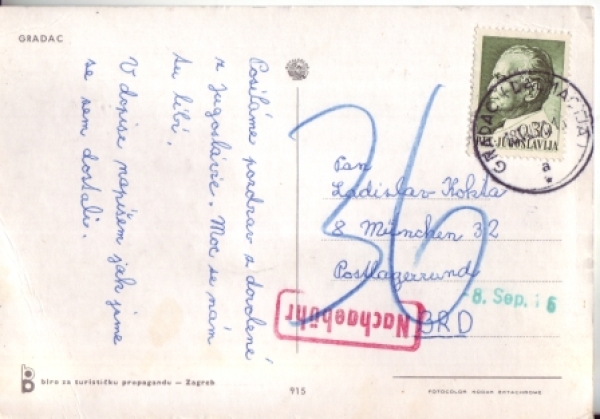 GRADAC
Posíláme pozdrav z dovolené
z Jugoslávie. Moc se nám
tu líbí.
V dopise napíšem jak jsme
se sem dostali.
0.30
JUGOSLAVIJA
GRADAC
a
36
Pan
Ladislav Kokta
8 München 32
Postlagerrund
BRD
8. Sep.
Nachgebühr
biro za turističku propagandu — Zagreb
915
FOTOCOLOR KODAK EKTACHROME